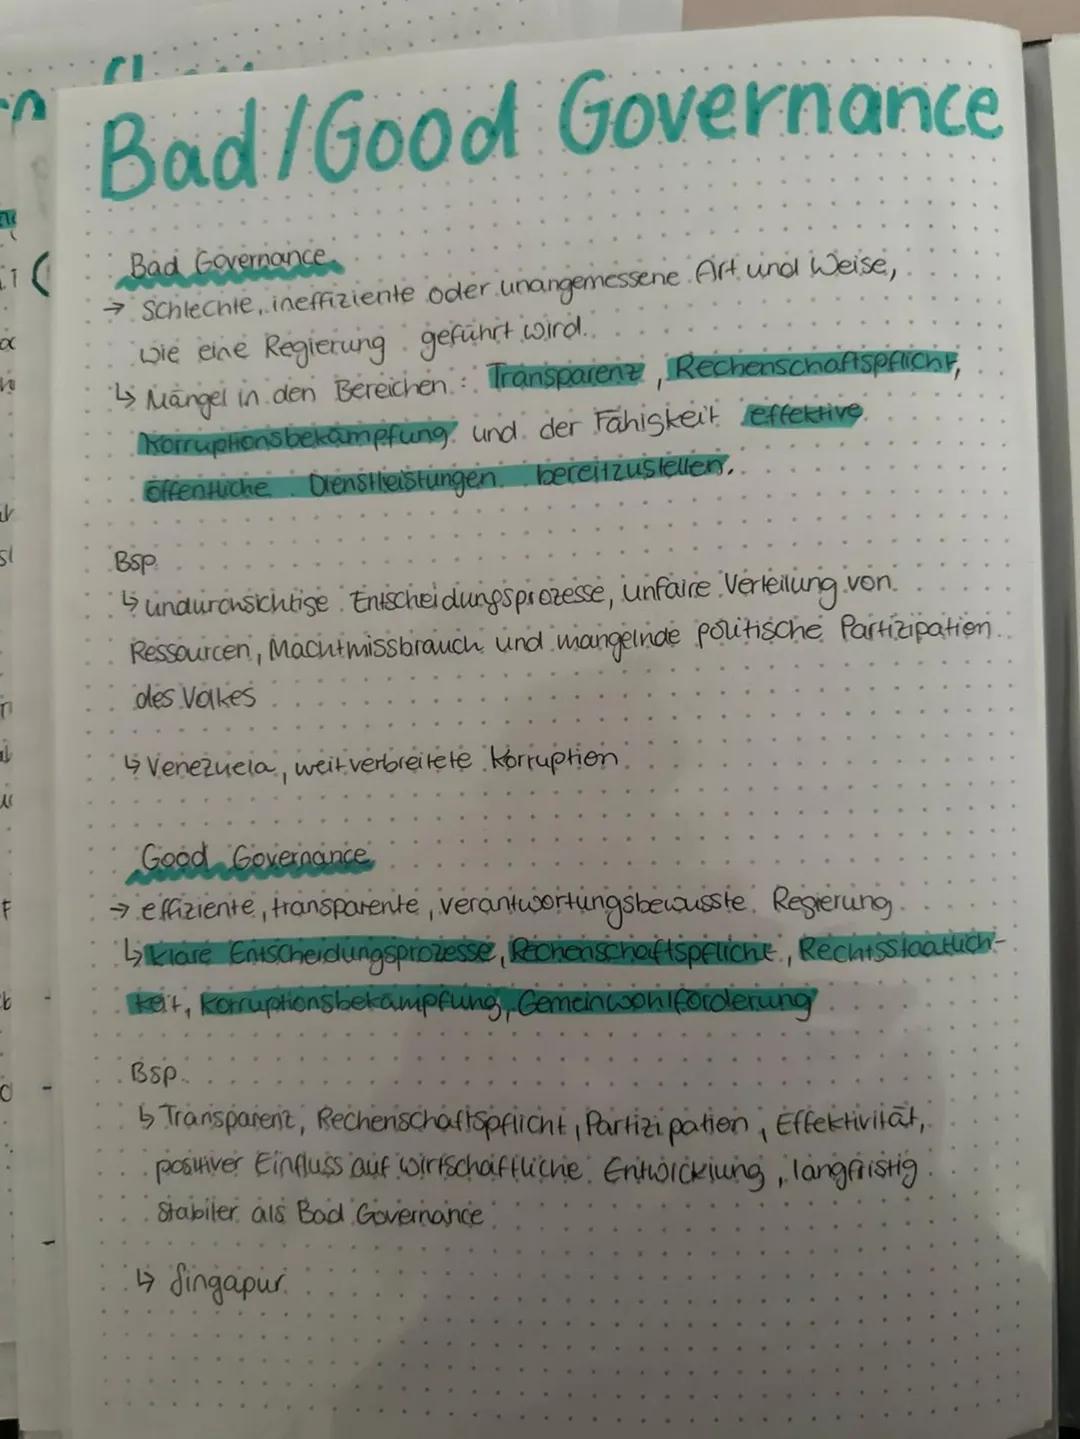 Bad/Good Governance
Bad Governance
→ Schlechte, ineffiziente oder unangemessene Art und Weise,
wie eine Regierung geführt wird.
↳ Mängel in den Bereichen: Transparenz, Rechenschaftspflicht,
Korruptionsbekämpfung und der Fähigkeit effektive
öffentliche Dienstleistungen bereitzustellen.
Bsp.
↳ undurchsichtige Entscheidungsprozesse, unfaire Verteilung von
Ressourcen, Machtmissbrauch und mangelnde politische Partizipation
des Volkes
↳ Venezuela, weitverbreitete Korruption
Good Governance
→ effiziente, transparente, verantwortungsbewusste Regierung
↳ klare Entscheidungsprozesse, Rechenschaftspflicht, Rechtsstaatlich-
keit, Korruptionsbekämpfung, Gemeinwohlförderung
Bsp.
↳ Transparenz, Rechenschaftspflicht, Partizipation, Effektivität,
positiver Einfluss auf wirtschaftliche Entwicklung, langfristig
stabiler als Bad Governance
↳ Singapur